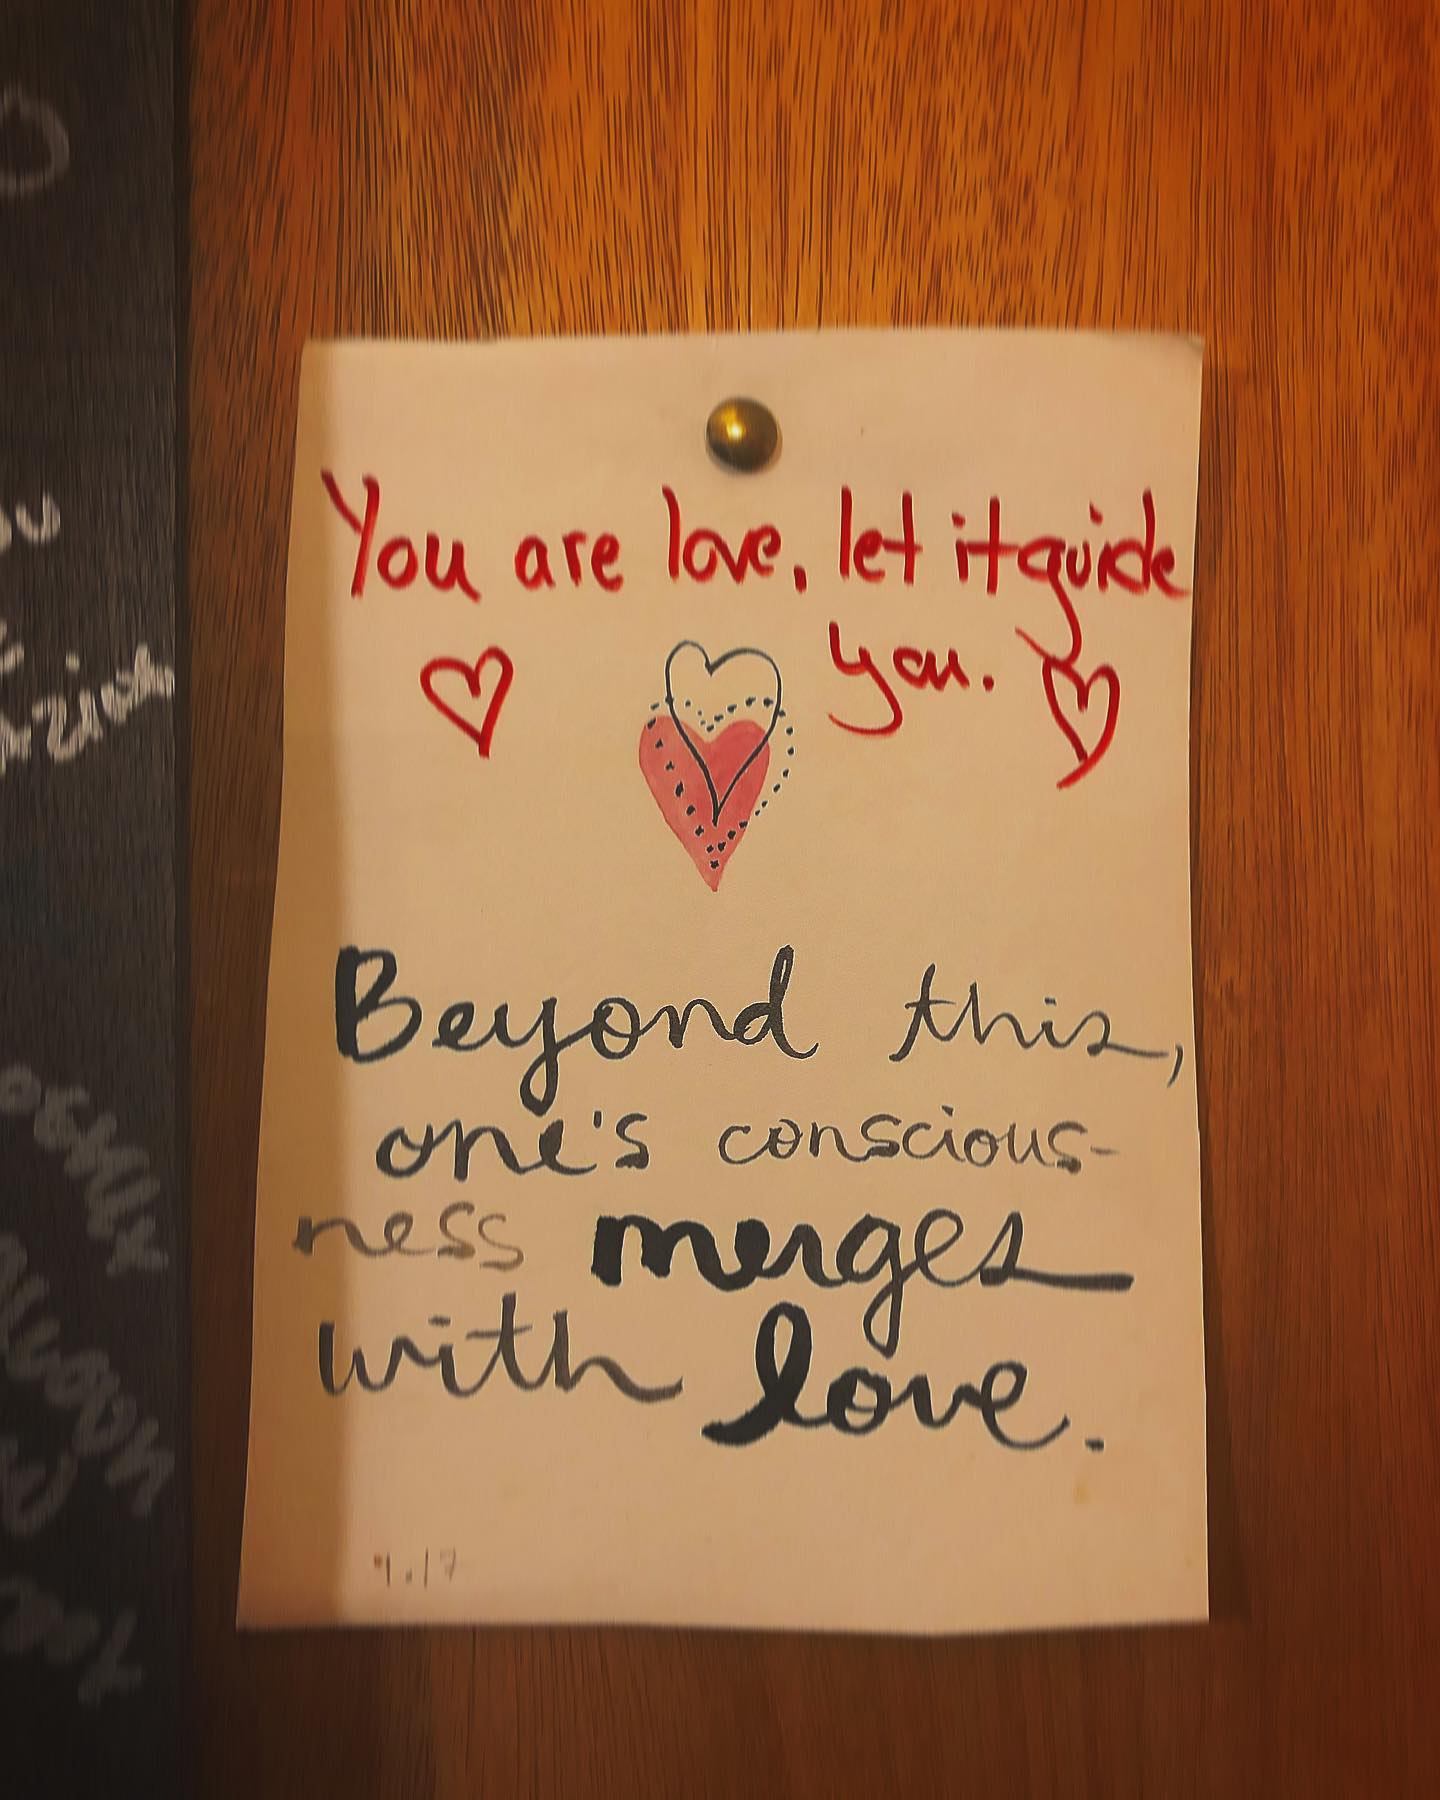 You are love, let it guide
you.
Beyond this,
one's conscious-
ness merges
with love.